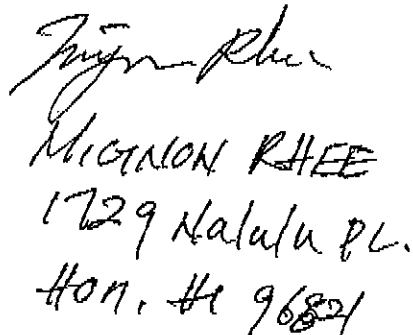 Mignon Rhee
MIGNON RHEE
1729 Nalulu PL.
Hon, HI 96821